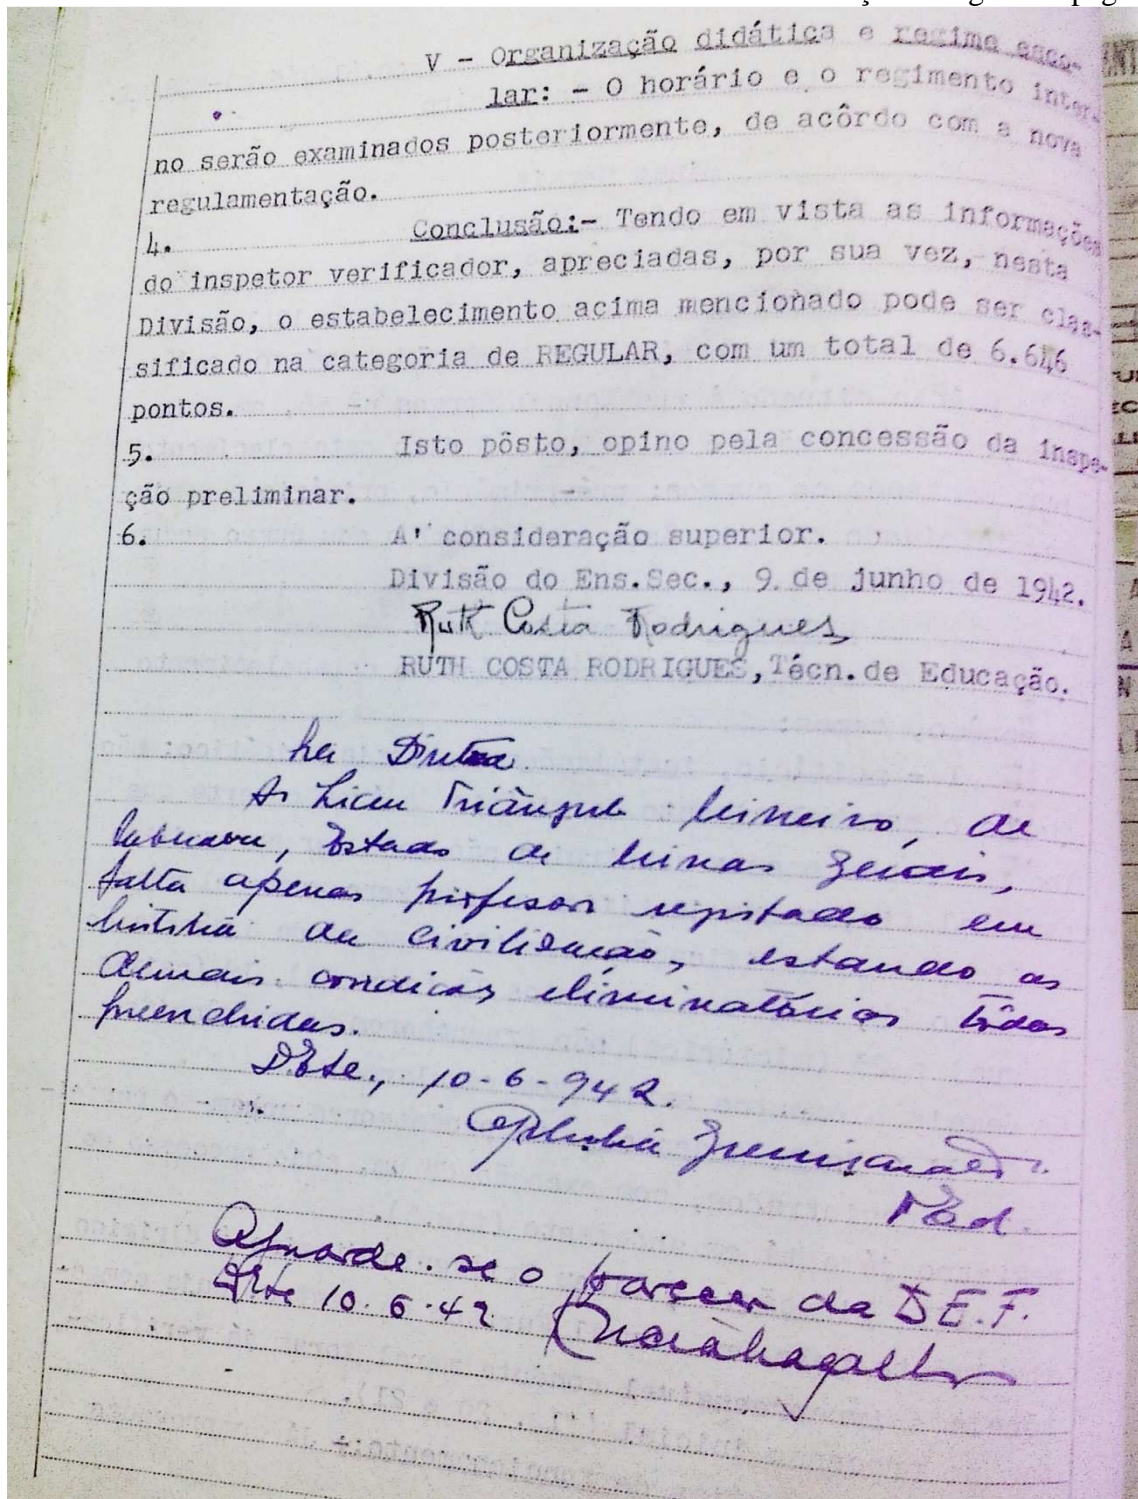 V - Organização didática e regime esco-
lar: - O horário e o regimento inter-
no serão examinados posteriormente, de acôrdo com a nova
regulamentação.
4. Conclusão:- Tendo em vista as informações
do inspetor verificador, apreciadas, por sua vez, nesta
Divisão, o estabelecimento acima mencionado pode ser clas-
sificado na categoria de REGULAR, com um total de 6.646
pontos.
5. Isto pôsto, opino pela concessão da inspe-
ção preliminar.
6. A' consideração superior.
Divisão do Ens.Sec., 9 de junho de 1942.
Ruth Costa Rodrigues
RUTH COSTA RODRIGUES, Técn. de Educação.
Diretora
Ao Liceu Triângulo Mineiro, de
Estado de Minas Gerais,
falta apenas professor registado em
história da civilização, estando as
demais condições eliminatórias tôdas
preenchidas.
10-6-942.
Aguarde-se o parecer da D.E.F.
10.6.42